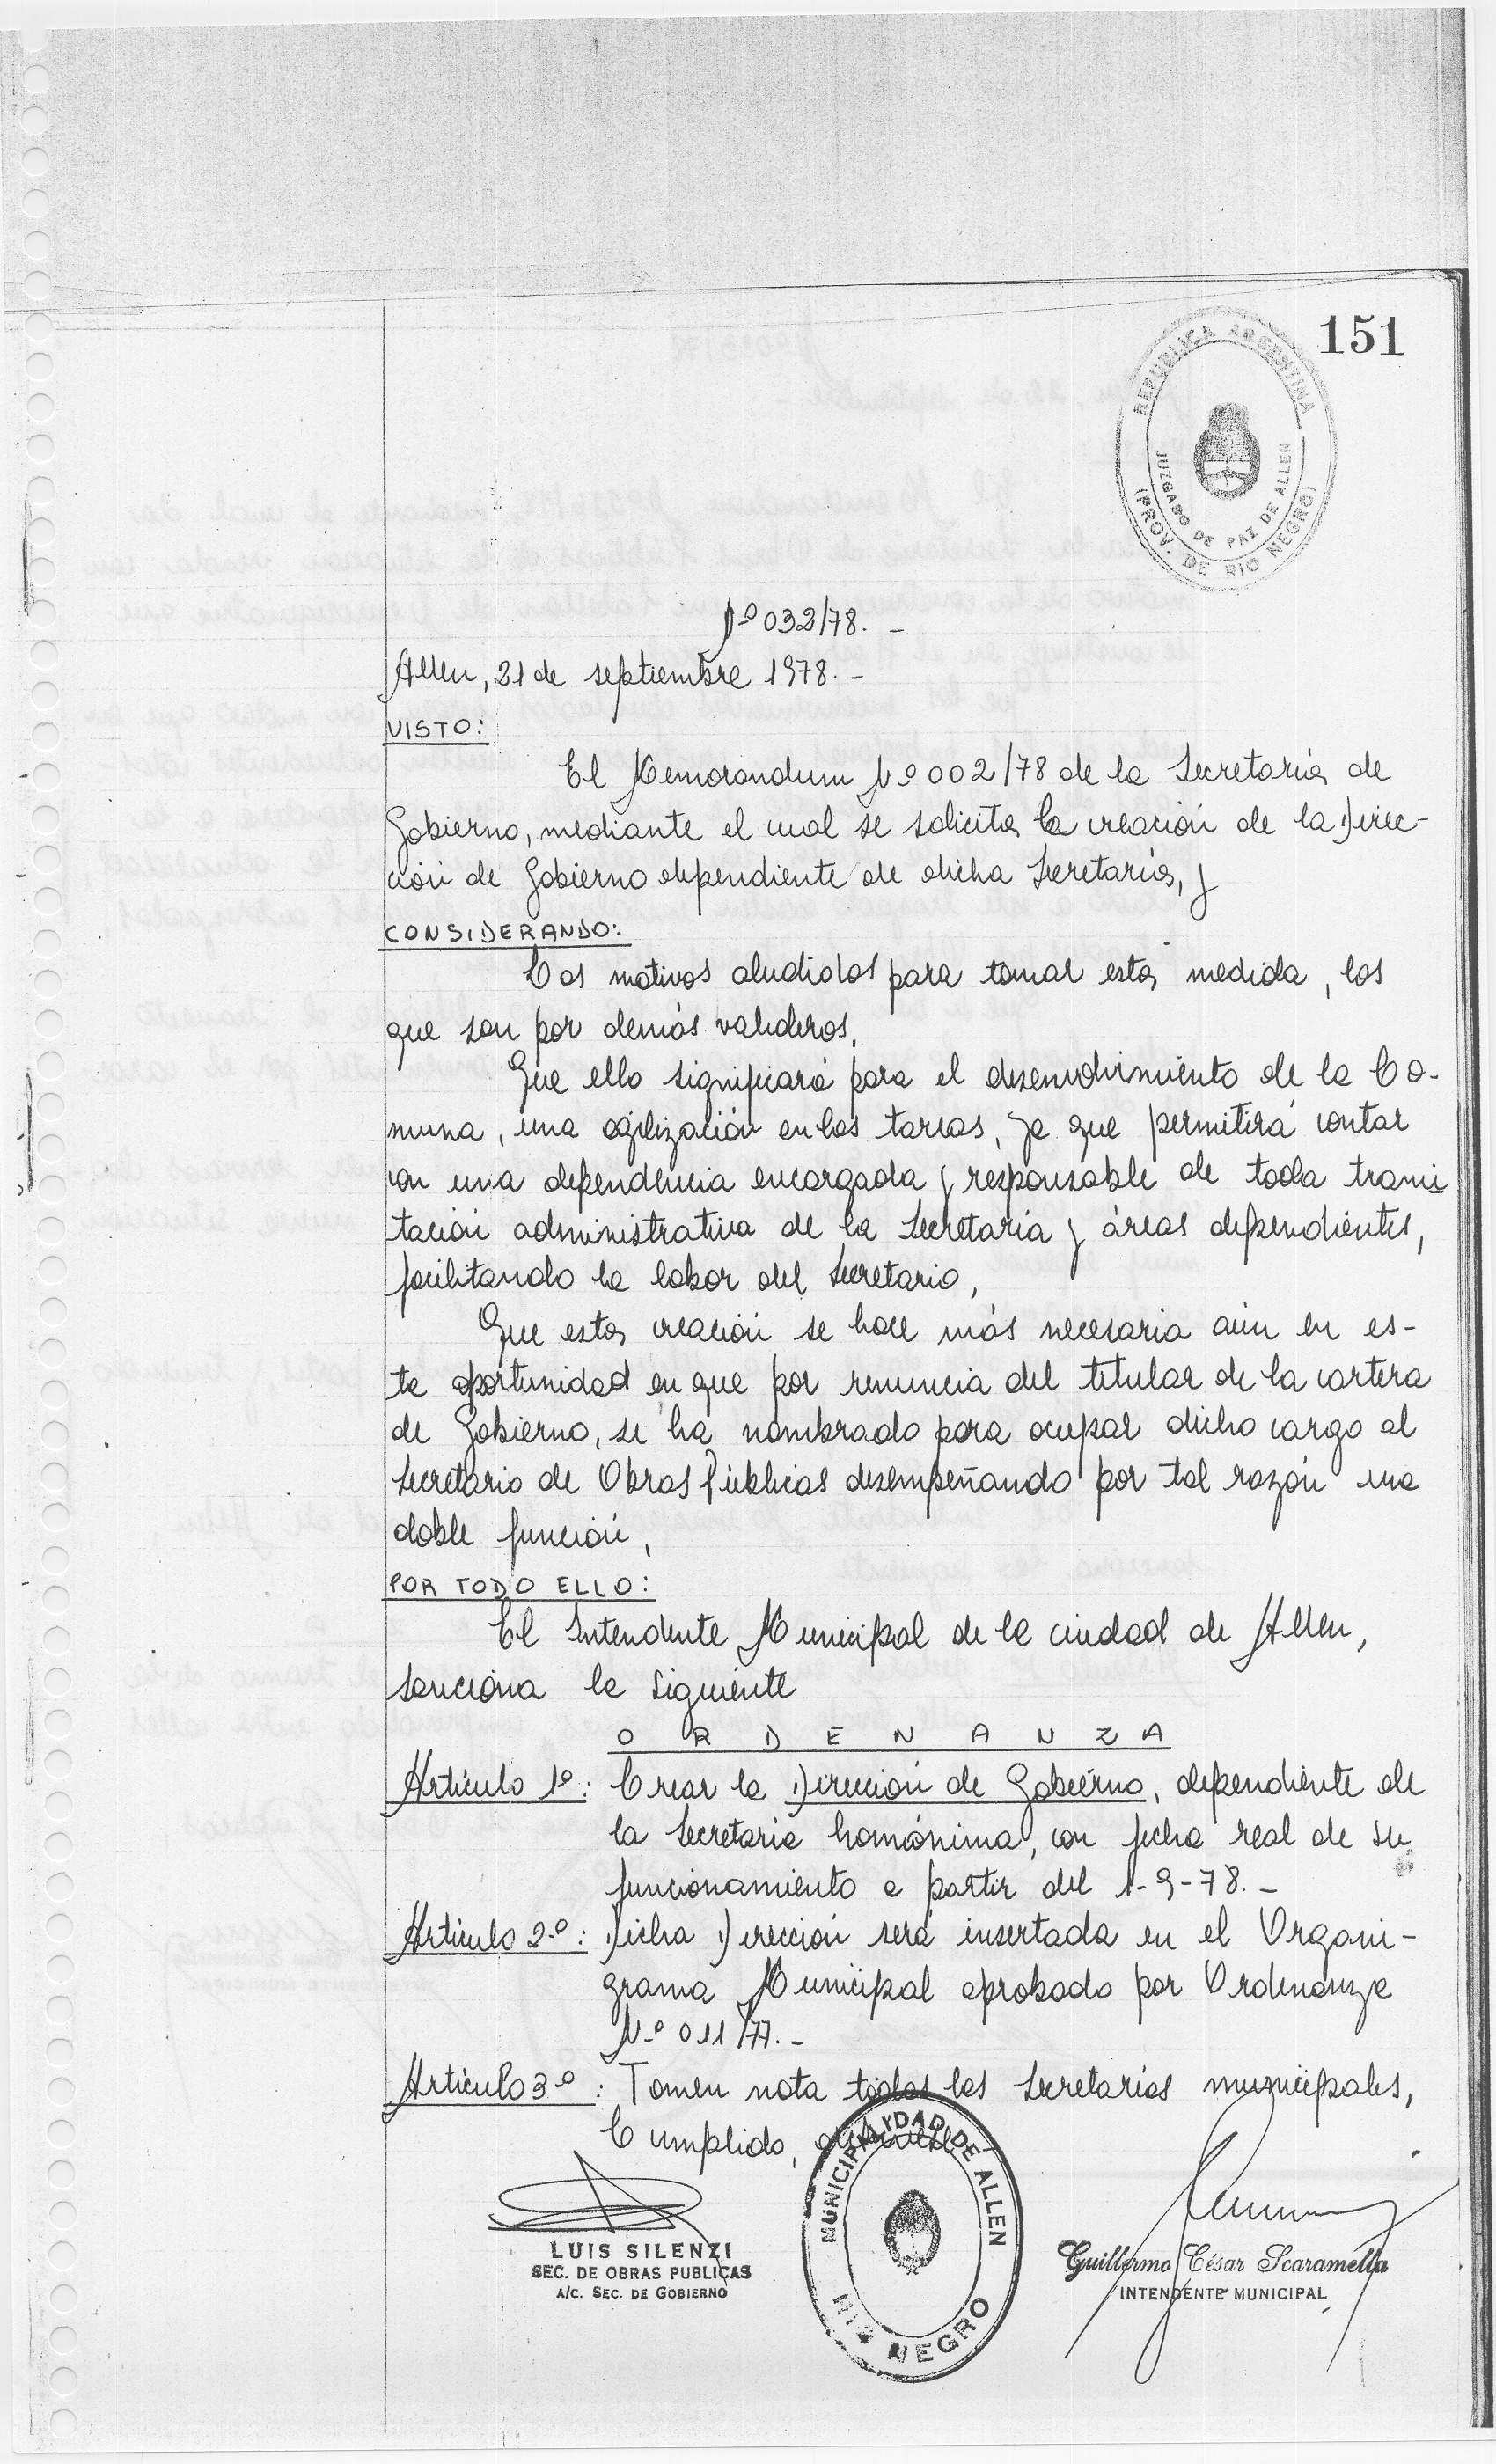 151
REPUBLICA ARGENTINA
JUZGADO DE PAZ DE ALLEN
(PROV. DE RIO NEGRO)
Nº 032/78.-
Allen, 21 de septiembre 1978.-
VISTO:
El Memorandum Nº 002/78 de la Secretaría de
Gobierno, mediante el cual se solicita la creación de la Direc-
ción de Gobierno dependiente de dicha Secretaría, y
CONSIDERANDO:
Los motivos aludidos para tomar esta medida, los
que son por demás valederos,
Que ello significará para el desenvolvimiento de la Co-
muna, una agilización en las tareas, ya que permitirá contar
con una dependencia encargada y responsable de toda trami
tación administrativa de la Secretaría y áreas dependientes,
facilitando la labor del Secretario,
Que esta creación se hace más necesaria aún en es-
ta oportunidad en que por renuncia del titular de la cartera
de Gobierno, se ha nombrado para ocupar dicho cargo al
Secretario de Obras Públicas desempeñando por tal razón una
doble función,
POR TODO ELLO:
El Intendente Municipal de la ciudad de Allen,
sanciona la siguiente
O R D E N A N Z A
Artículo 1º: Crear la Dirección de Gobierno, dependiente de
la Secretaría homónima, con fecha real de su
funcionamiento a partir del 1-9-78.-
Artículo 2º: Dicha Dirección será insertada en el Organi-
grama Municipal aprobado por Ordenanza
Nº 011/77.-
Artículo 3º: Tomen nota todas las Secretarías municipales,
Cumplido,
MUNICIPALIDAD DE ALLEN
RIO NEGRO
LUIS SILENZI
SEC. DE OBRAS PUBLICAS
A/C. SEC. DE GOBIERNO
Guillermo César Scaramella
INTENDENTE MUNICIPAL